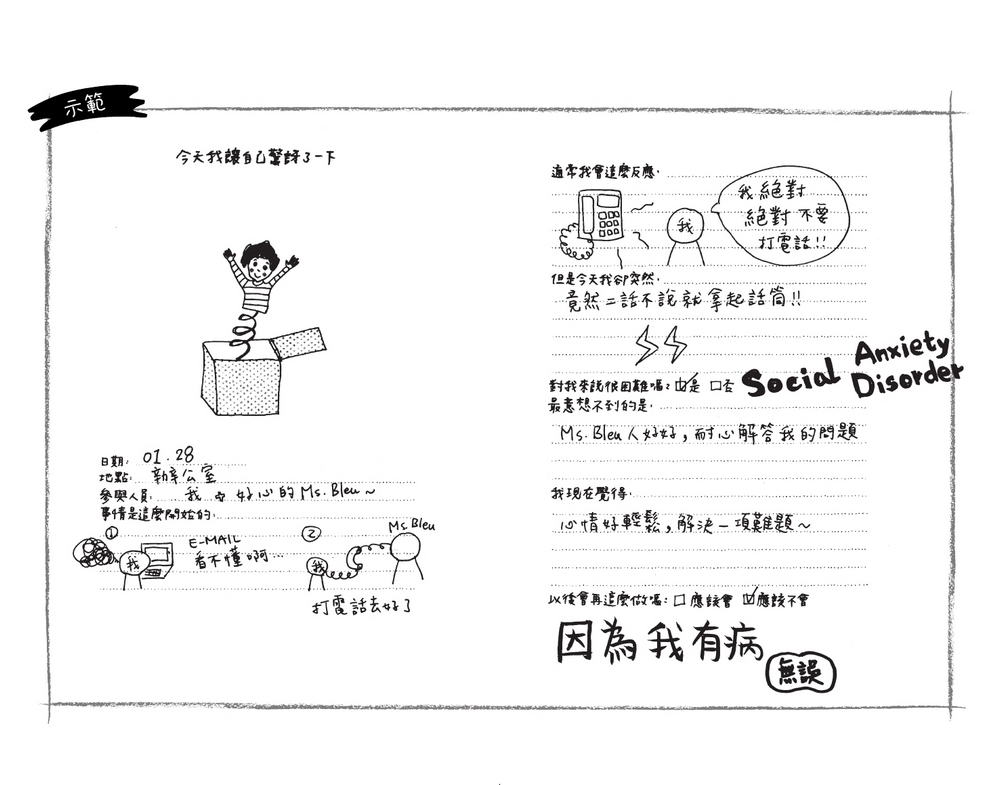 示範
今天我讓自己驚訝了一下
日期: 01.28
地點: 辦公室
參與人員: 我 + 好心的 Ms. Bleu~
事情是這麼開始的:
① E-MAIL
我 看不懂啊…
② Ms Bleu
我
打電話去好了
通常我會這麼反應:
我絕對
絕對不要
打電話!!
我
但是今天我卻突然:
竟然二話不說就拿起話筒!!
對我來說很困難嗎? ☑是 □否
Social Anxiety
Disorder
最意想不到的是:
Ms. Bleu人好好,耐心解答我的問題
我現在覺得:
心情好輕鬆,解決一項難題~
以後會再這麼做嗎? □ 應該會 ☑ 應該不會
因為我有病
無誤